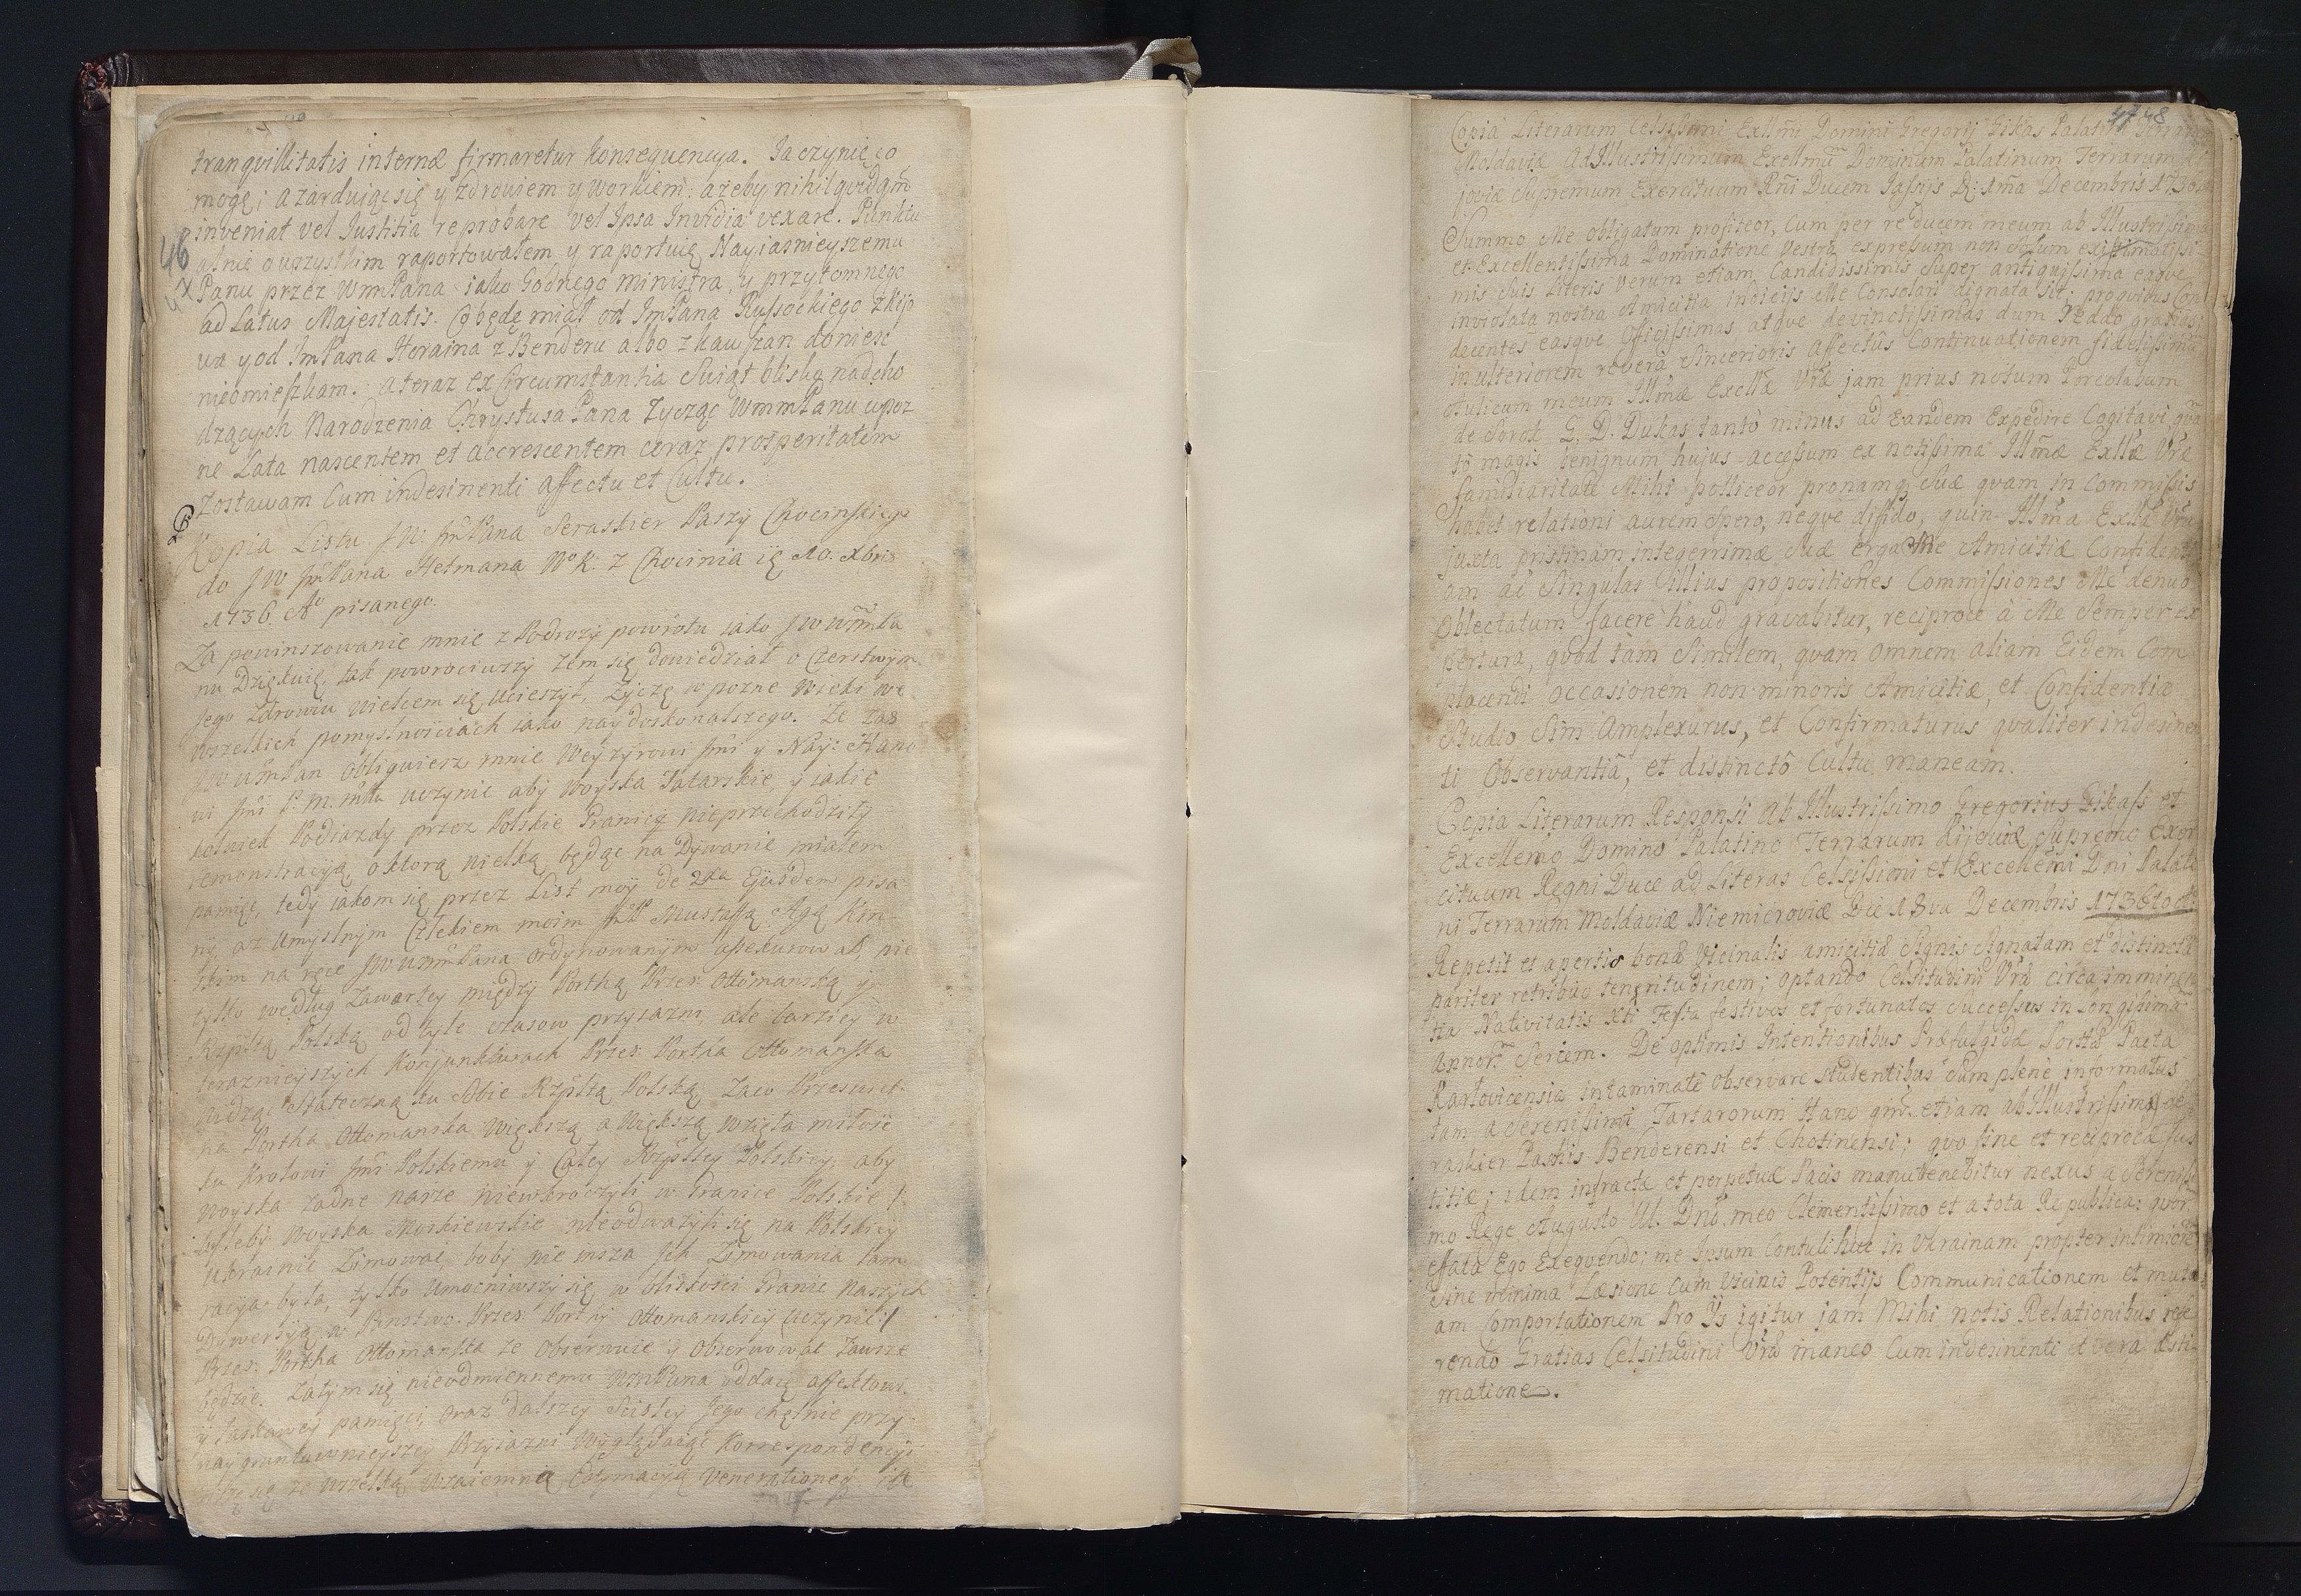 tranqvillitatis internæ firmaretur konsequencya. Ja czynię co
mogę; azarduiąc się y zdrowiem y workiem: ażeby nihil qvidqm̃
inveniat vel Justitia reprobare vel Ipsa Invidia vexare. Punktu
alnie o wszystkim raportowałem y raportuię Nayiasnieyszemu
Panu przez WmPana iako Godnego ministra, y przytomnego
ad Latus Majestatis. Co będę miał od JmPana Russockiego z kijo
wa y od JmPana Horaina z Benderu albo z kauszan donieść
nieomieszkam. a teraz ex Circumstantia Swiąt blisko nadcho
dzących Narodzenia Chrystusa Pana życząc WmmPanu w poz
ne Lata nascentem et accrescentem coraz prosperitatem
zostawam Cum indesinenti affectu et Cultu.
46
47
Kopia Listu J.W. JmPana Seraskier Paszy Chocimskiego
do JW JmPana Hetmana W. K. z Chocimia ię 10. Xbris
1736. A° pisanego.
Za powinszowanie mnie z Podrozy powrotu iako JWWmPa
nu Dziękuię, tak powrociwszy żem się dowiedział o Czerstwym
Jego Zdrowiu wielcem się ucieszył. Zyczę w pozne Wieki we
wszelkich pomyslnościach iako naydoskonalszego. Ze zas
JWWmPan obliguiesz mnie Weyzyrowi Jm̃i y Nay: Hano
wi Jm̃i P. m. mu uczynic aby Woyska Tatarskie, y iakie
kolwiek Podiazdy przez Polskie Granicę nieprzechodziły
remonstracyą, o ktorą wielką będąc na Dywanie miałem
pamięc, tedy iakom się przez List moy de 2da Ejusdem pisa
ny, az umyslnym Człekiem moim JmP Mustaffą Agą Kin
skim na ręce JWWmPana ordynowanym assekurował, nie
tylko według zawartey między Porthą Przes: Ottomanską y
Rzpltą Polską od tyle czasow przyiazni, ale barziey w
terazniejszych Konjunkturach Przes: Portha Ottomanska
widząc Stateczną ku Sobie Rzpltą Polską
na Portha Ottomanska większą a większą wzięła miłość
ku Krolowi Jm̃i Polskiemu y Całey Rzpltey Polskiey, aby
woyska żadne nasze niewkroczyli w Granice Polskie /:
byleby Woyska Moskiewskie nieodważyli się na Polskiey
Ukrainie Zimowac, boby nie insza Jch Zimowania tam
racya była, tylko umocniwszy się w bliskości Granic naszych
Dywersyą w Panstwo Przes: Porthy Ottomanskiey uczynic :/
Przes: Portha Ottomanska ze obserwuie y obserwowac zawsze
będzie. Zatym się nieodmiennemu WmPana oddaię affektowi
y łaskawey pamięci, oraz dalszey Scisłey Jego chętnie przy
nay gruntownieyszey Przyiazni wyglądaiąc Korrespondencyi
się ze wszelką wzaiemnią Estymacyą
47 48
Copia Literarum Celsissimi Exll̃mi Domini Gregorij Gikas Palatini Terrarum
Moldaviæ Ad Illustrissimum Exellmũ Dominum Palatinum Terrarum Ki
joviæ Supremum Exercituum Rñi Ducem Jassijs D: 1ma Decembris 1736
Summo Me obligatum profiteor, Cum per reducem meum ab Illustrissima
et Excellentissima Dominatione Vestra expressum non Solum existimatissi
mis Suis Literis verum etiam Candidissimis Super antiquissima eaqve
inviolata nostra Amicitia indicijs Me Consolari dignata sit; proqvibus Con
decentes easqve Officiissimas atqve devinctissimas dum reddo gratias;
in ulteriorem revera Sincerioris Affectûs Continuationem fidelissimũ
Aulicum meum Illm̃æ Exellæ Vr̃æ jam prius notum Porcolabum
de Sorok G. D. Dukas tantò minus ad Eandem Expedire Cogitavi qvã
tò magis benignum hujus accessum ex notissima Illm̃æ Exllæ Vr̃æ
familiaritate Mihi polliceor pronamq; Suæ qvam in Commissis
habet relationi aurem Spero, neqve diffido, quin Illm̃a Exlla Vr̃a
juxta pristinam integerrimæ Suæ erga Me Amicitiæ Confidenti
am ac Singulas Illius propositiones Commissiones Me denuo
Oblectatum facere haud gravabitur, reciproce à Me Semper ex
pertura, qvod tàm Similem, qvam omnem aliam Eidem Com
placendi occasionem non minoris Amicitiæ, et Confidentiæ
Studio Sim Amplexurus, et Confirmaturus qvaliter indesinen
ti Observantiâ, et distinctô Cultu maneam.
Copia Literarum Responsi Ab Illustrissimo Gregorius Gikass et
Excellem̃o Domino Palatino Terrarum Kijoviæ Supremo Exer
cituum Regni Duce ad Literas Celsissimi et Excellem̃i Dni Palati
ni Terrarum Moldaviæ Niemiroviæ Die 18va Decembris 1736to
Repetit et apertis bonæ Vicinalis amicitiæ Signis Signatam et distincta
pariter retribuo teneritudinem; optando Celsitudini Vr̃æ circa imminen
tia Nativitatis Xti Festa festivos et fortunatos Successus in longissimã
Annor̃m Seriem. De optimis Intentionibus Præfulgidæ Porttæ Pacta
Karlovicensia intaminatè observare studentibus Sum plenè informatus
tam a Serenissimi Tartarorum Hano qm̃ etiam ab Illustrissimo Se
raskier Paschis Benderensi et Chotinensi; qvo fine et reciproca Jus
titiæ; idem infractæ et perpetuæ Pacis manutenebitur nexus a Serenissi
mo Rege Augusto III. Dnõ meo Clementissimo et a tota Republica: qvor̃
effata Ego Exeqvendo; me Ipsum Contuli huc in Ukrainam propter intimiorẽ
Sine minima Læsione Cum Vicinis Potentijs Communicationem et mutu
am Comportationem Pro Ijs igitur jam Mihi notis Relationibus refe
rendo Gratias Celsitudini Vr̃æ maneo Cum indesinenti et vera Æsti
matione.